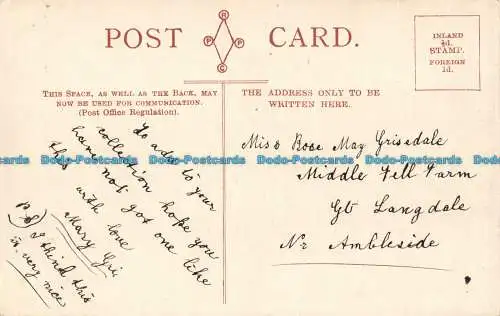 POST CARD.
R
P P
C
INLAND
½d.
STAMP.
FOREIGN
1d.
THIS SPACE, AS WELL AS THE BACK, MAY
NOW BE USED FOR COMMUNICATION.
(Post Office Regulation).
THE ADDRESS ONLY TO BE
WRITTEN HERE.
To add to your
collection hope you
have not got one like
this with love
Mary Gri
P.S) I think this
is very nice
Miss Rose May Grisedale
Middle Fell Farm
Gt Langdale
Nr Ambleside
Dodo-Postcards Dodo-Postcards Dodo-Postcards Dodo-Postcards Dodo-Postcards